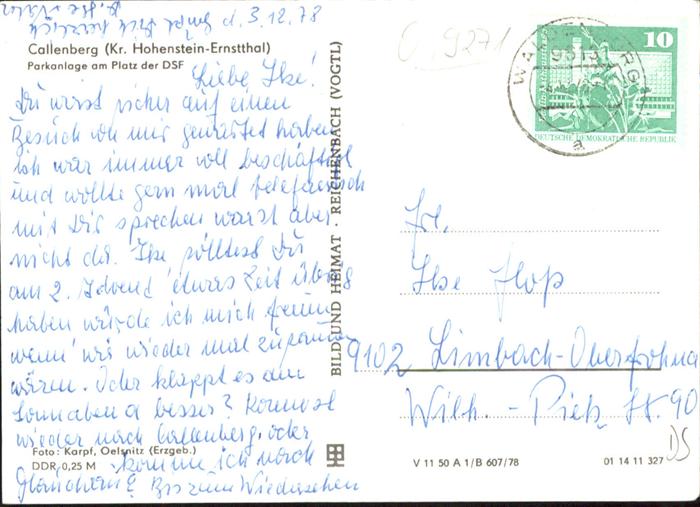 d. 3.12.78
Callenberg (Kr. Hohenstein-Ernstthal)
Parkanlage am Platz der DSF
Liebe Ilse!
Du wirst sicher auf einen
Besuch von mir gewartet haben
ich war immer voll beschäftigt
und wollte gern mal telefonisch
mit Dir sprechen warst aber
nicht da. Ilse solltest Du
am 2. Advent etwas Zeit übrig
haben würde ich mich freuen
wenn wir wieder mal zusammen
wären. Oder klappt es am
Sonnabend besser? Kommst
wieder nach Callenberg, oder
komme ich nach
Glauchau? Bis zum Wiedersehen
herzlich
Foto: Karpf, Oelsnitz (Erzgeb.)
DDR 0,25 M
BILD UND HEIMAT · REICHENBACH (VOGTL)
9271
WALDENBURG
9613
a
10
DEUTSCHE DEMOKRATISCHE REPUBLIK
Fr.
Ilse Flop
9102 Limbach-Oberfrohna
Wilh.-Pieck Str. 90
V 11 50 A 1/B 607/78
01 14 11 327
DS